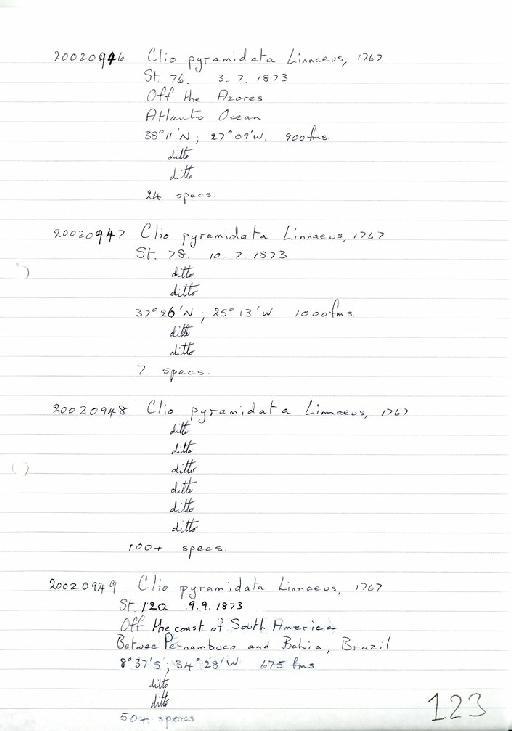 20020946 Clio pyramidata Linnaeus, 1767
St. 76. 3.7.1873
Off the Azores
Atlantic Ocean
38°11'N; 27°09'W. 900fms
ditto
ditto
24 specs
20020947 Clio pyramidata Linnaeus, 1767
St. 78. 10.7.1873
ditto
ditto
37°26'N; 25°13'W 1000fms
ditto
ditto
7 specs.
20020948 Clio pyramidata Linnaeus, 1767
ditto
ditto
ditto
ditto
ditto
ditto
100+ specs.
20020949 Clio pyramidata Linnaeus, 1767
St. 120 9.9.1873
Off the coast of South America
Between Pernambuco and Bahia, Brazil
8°37'S; 34°28'W 675 fms
ditto
ditto
50+ specs
123